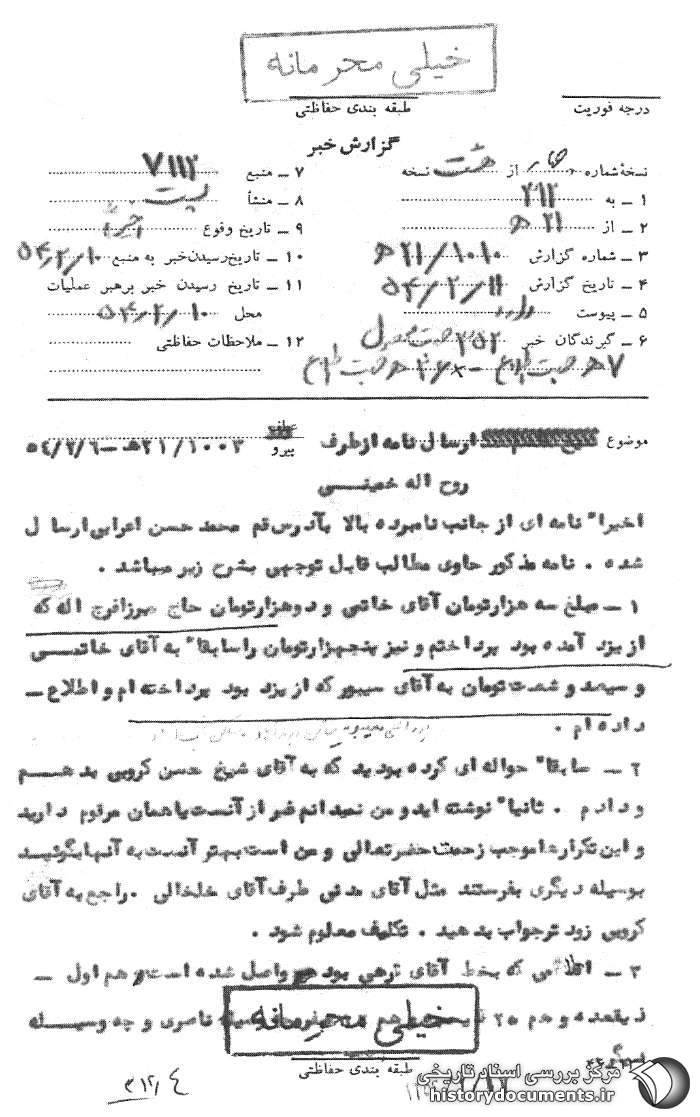 خیلی محرمانه
درجه فوریت
طبقه بندی حفاظتی
گزارش خبر
نسخهٔ شماره چهار از هشت نسخه
۱ ــ به ۳۱۲
۲ ــ از ۲۱ ه
۳ ــ شماره گزارش ۲۱/۱۰۱۰ ه
۴ ــ تاریخ گزارش ۵۴/۲/۱۱
۵ ــ پیوست دارد
۶ ــ گیرندگان خبر
۷ ــ منبع ۷۱۱۲
۸ ــ منشأ پست
۹ ــ تاریخ وقوع اخیرا
۱۰ ــ تاریخ رسیدن خبر به منبع ۵۴/۲/۱۰
۱۱ ــ تاریخ رسیدن خبر برهبر عملیات
محل ۵۴/۲/۱۰
۱۲ ــ ملاحظات حفاظتی
موضوع ارسال نامه ازطرف
روح اله خمینی
عطف
پیرو ۲۱/۱۰۰۳ هـ ــ ۵۴/۲/۶
اخیرا" نامه ای از جانب نامبرده بالا بآدرس قم محمد حسن اعرابی ارسال
شده . نامه مذکور حاوی مطالب قابل توجهی بشرح زیر میباشد .
۱ ــ مبلغ سه هزارتومان آقای خاتمی و دوهزارتومان حاج میرزافرج اله که
از یزد آمده بود پرداختم و نیز پنجهزارتومان را سابقا" به آقای خاتمی
و سیصد و شصت تومان به آقای سیبور که از یزد بود پرداخته ام و اطلاع ــ
داده ام .
۲ ــ سابقا" حواله ای کرده بودید که به آقای شیخ حسن کروبی بدهم
و دادم . ثانیا" نوشته اید و من نمیدانم غیر از آنست یا همان مرقوم دارید
و این تکرارها موجب زحمت حضرتعالی و من است بهتر آنست به آنها بگوئید
بوسیله دیگری بفرستند مثل آقای مدنی طرف آقای خلخالی . راجع به آقای
کروبی زود تر جواب بدهید . تکلیف معلوم شود .
۳ ــ که بخط آقای بود واصل شده است و هم اول ــ
ذیقعده و هم ۲۵ ناصری و چه وسیله
خیلی محرمانه
طبقه بندی حفاظتی
مرکز بررسی اسناد تاریخی
historydocuments.ir